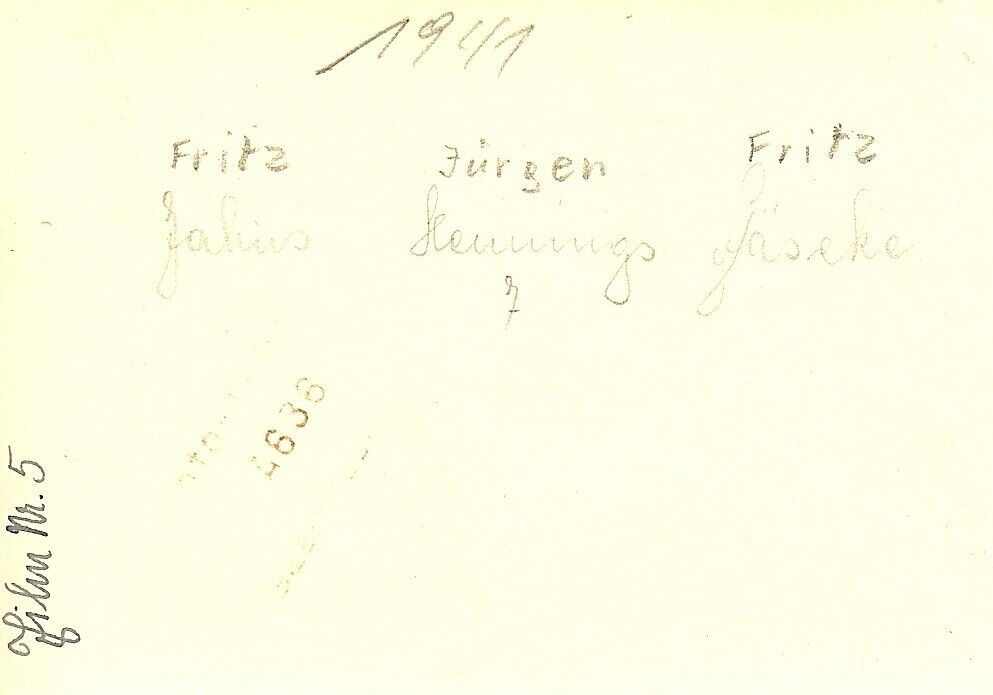 1941
Fritz Jürgen Fritz
Jahns Hennings Jäseke
4636
Film Nr. 5